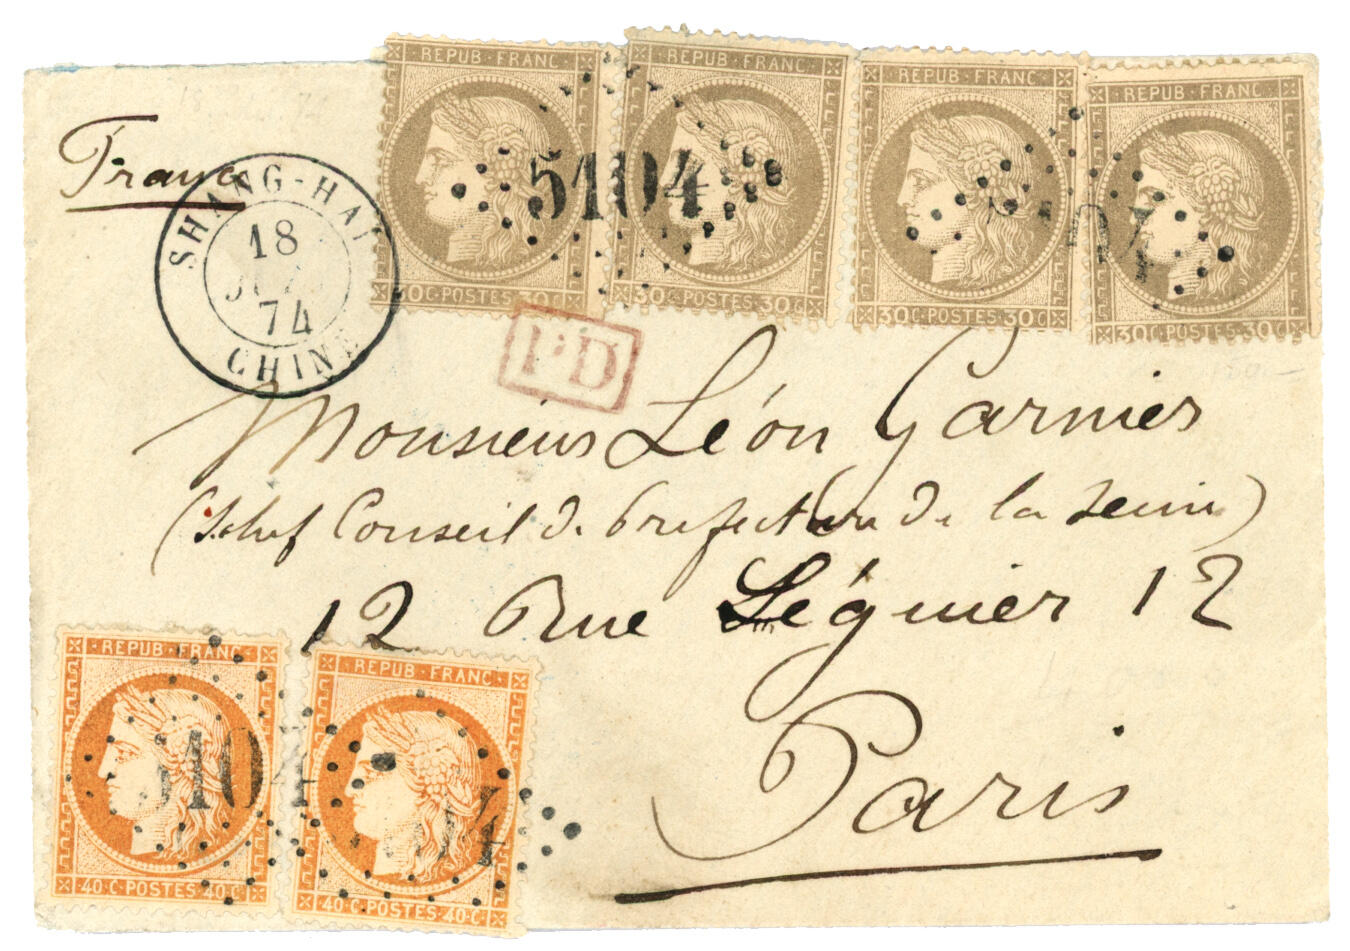 REPUB·FRANC REPUB·FRANC REPUB·FRANC REPUB·FRANC
France
SHANG-HAI
18
74
CHINE
5104
04
30·C·POSTES·30·C 30·C·POSTES·30·C 30·C·POSTES·30·C 30·C·POSTES·30·C
PD
Monsieur Léon Garnier
Conseil de Prefecture de la Seine)
12 Rue Léguier 12
Paris
REPUB·FRANC REPUB·FRANC
5104
04
40·C·POSTES·40·C 40·C·POSTES·40·C